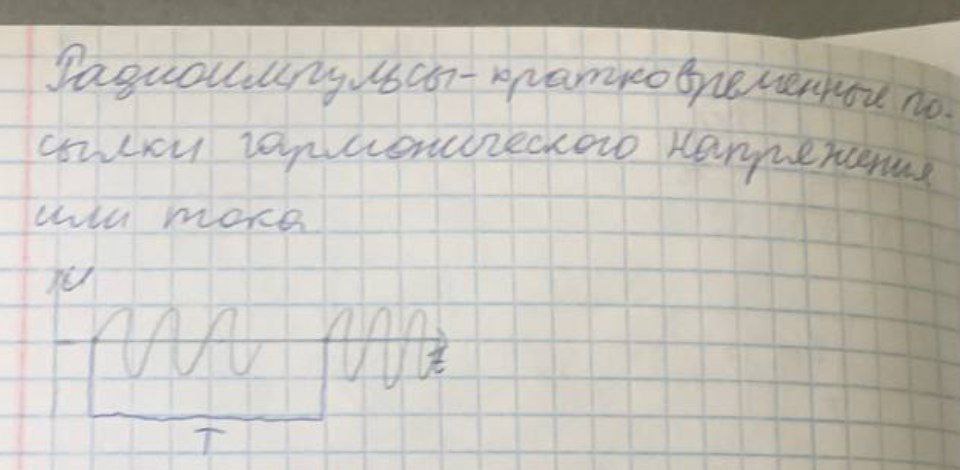 Радиоимпульсы - кратковременные по-
сылки гармонического напряжения
или тока
U
t
T